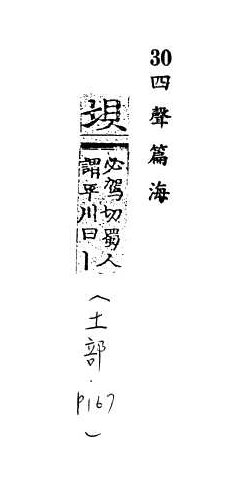 30四聲篇海
垻
必駕切蜀人
謂平川曰丨
(土部.p167)